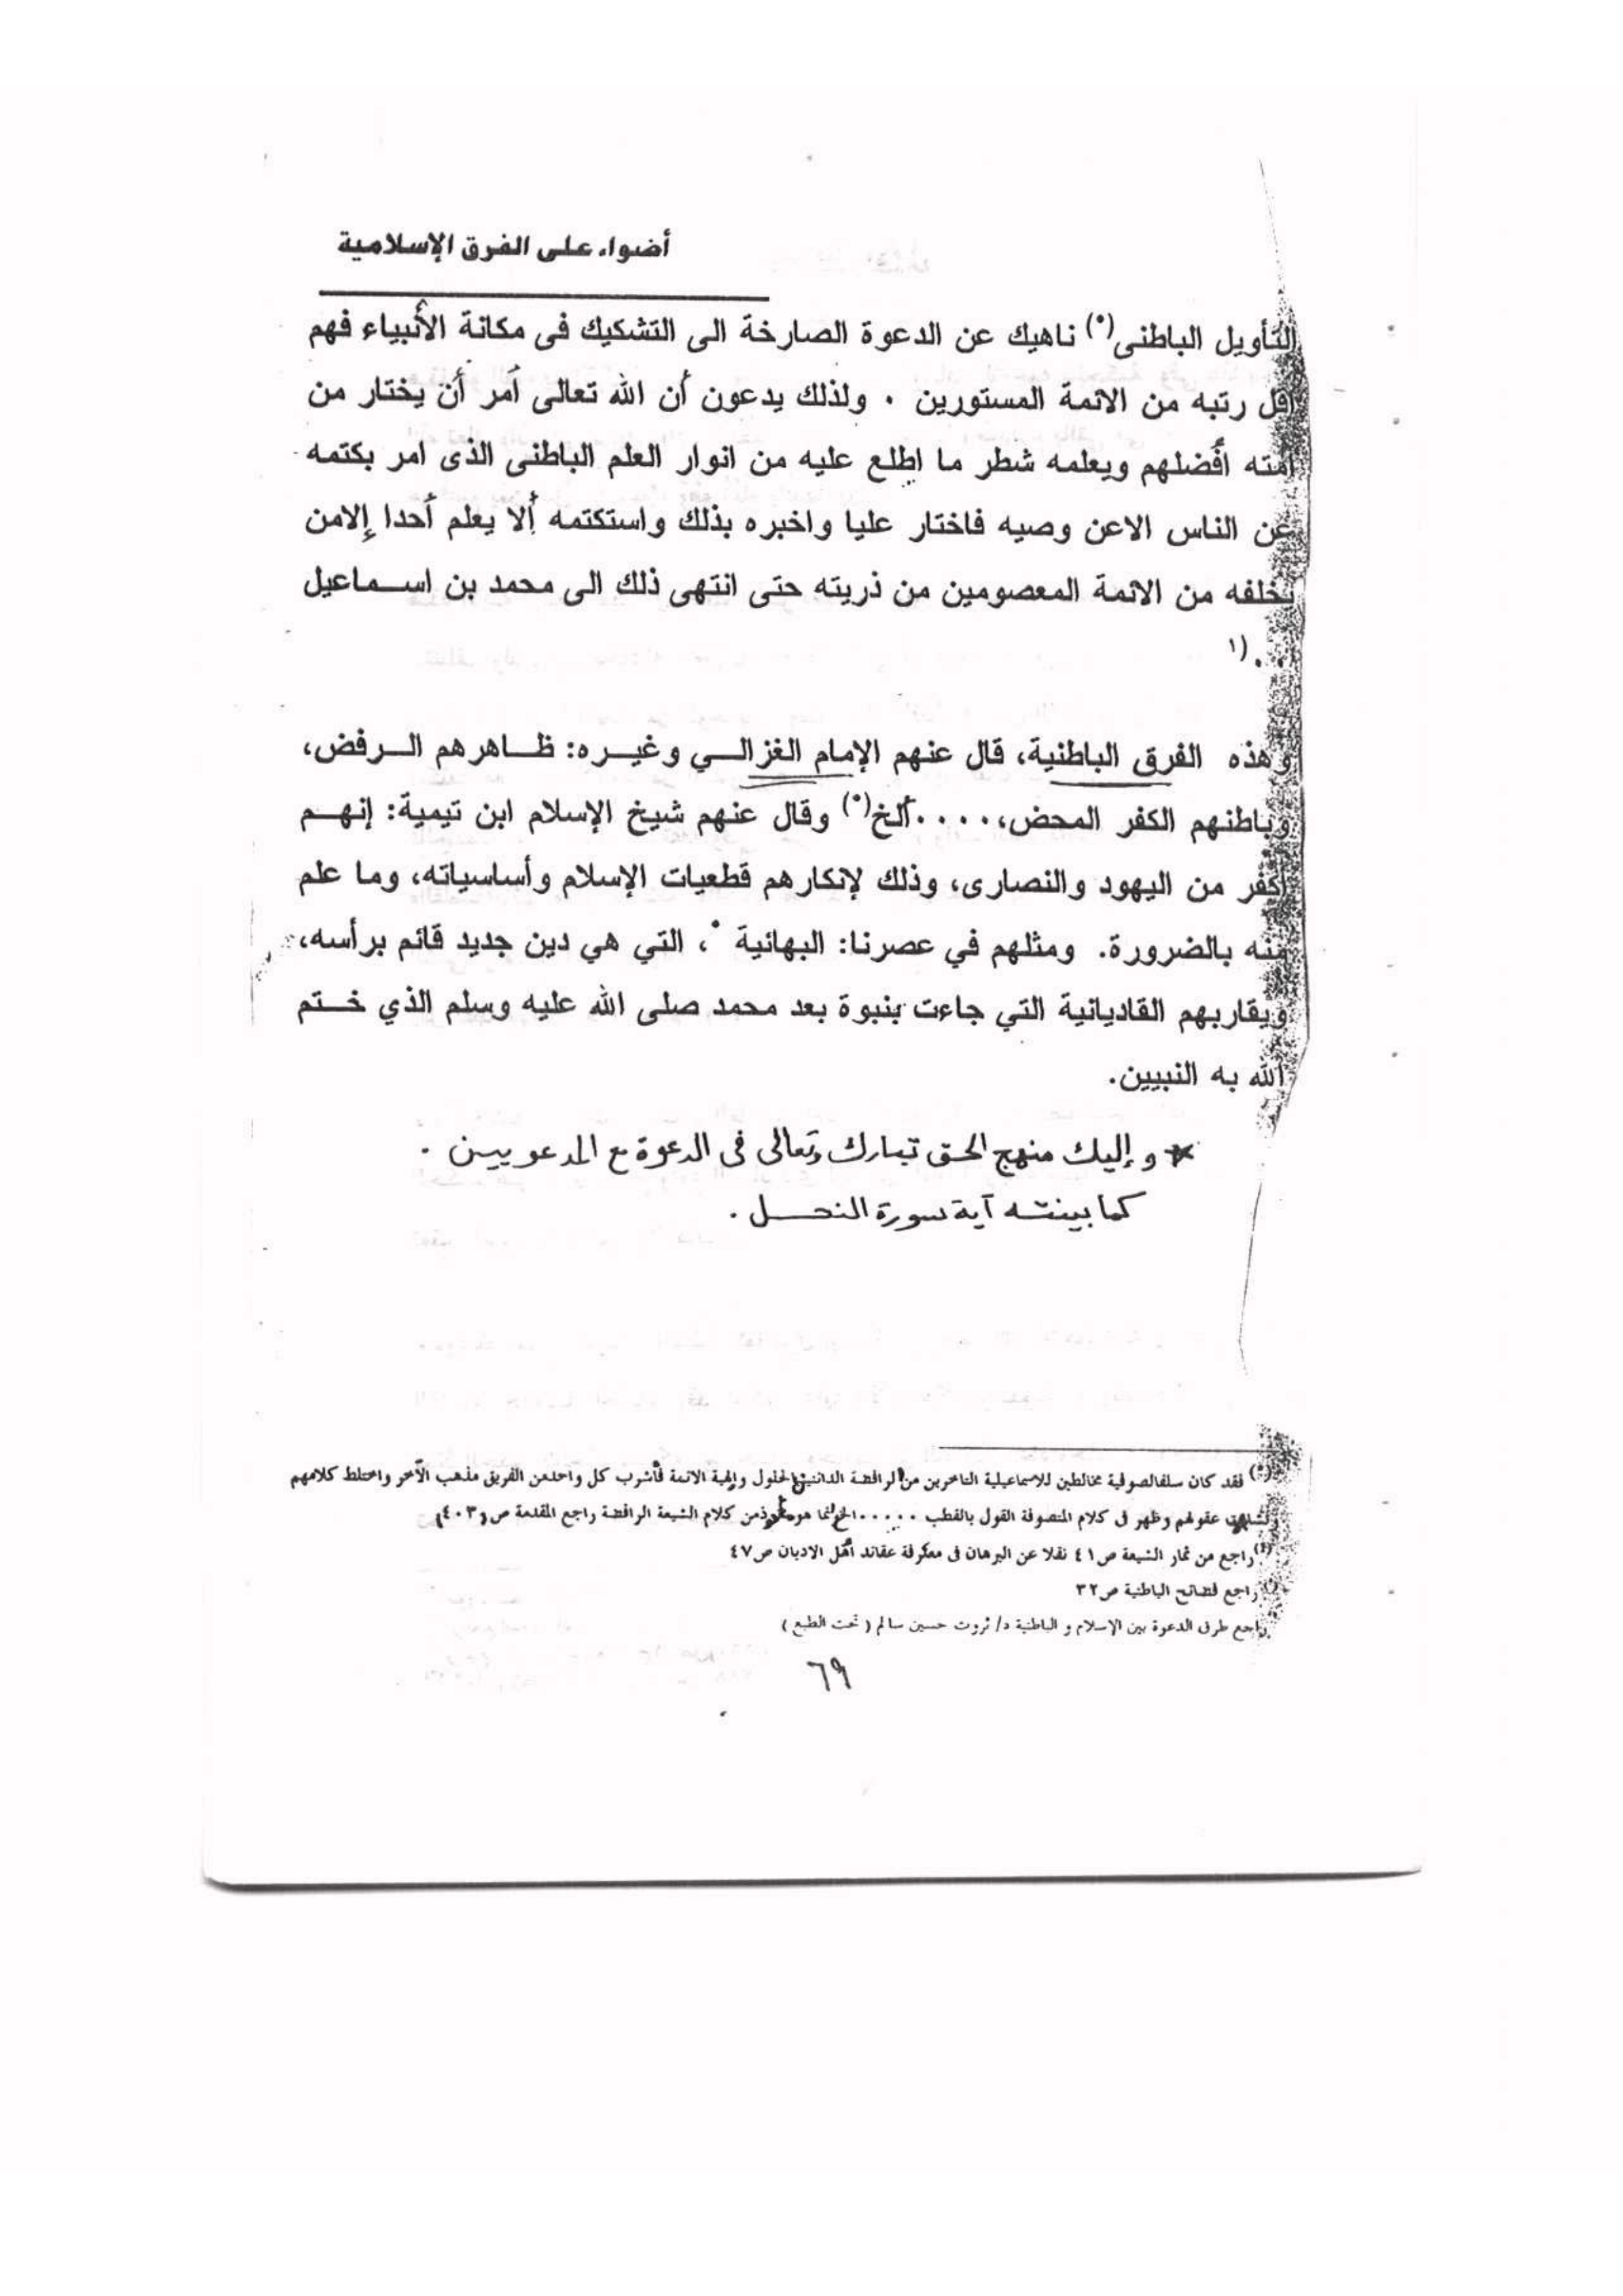 أضواء على الفرق الإسلامية
التأويل الباطنى(*) ناهيك عن الدعوة الصارخة الى التشكيك فى مكانة الأنبياء فهم
اقل رتبه من الائمة المستورين . ولذلك يدعون أن الله تعالى أمر أن يختار من
امته أفضلهم ويعلمه شطر ما اطلع عليه من انوار العلم الباطنى الذى امر بكتمه
عن الناس الاعن وصيه فاختار عليا واخبره بذلك واستكتمه ألا يعلم أحدا إلامن
يخلفه من الائمة المعصومين من ذريته حتى انتهى ذلك الى محمد بن اسـماعيل
..(١
وهذه الفرق الباطنية، قال عنهم الإمام الغزالـي وغيـره: ظـاهرهم الـرفض،
وباطنهم الكفر المحض،....ألخ(*) وقال عنهم شيخ الإسلام ابن تيمية: إنهـم
أكفر من اليهود والنصارى، وذلك لإنكارهم قطعيات الإسلام وأساسياته، وما علم
منه بالضرورة. ومثلهم في عصرنا: البهائية *، التي هي دين جديد قائم برأسه،
ويقاربهم القاديانية التي جاءت بنبوة بعد محمد صلى الله عليه وسلم الذي خـتم
الله به النبيين.
* و إليك منهج الحق تبارك وتعالى فى الدعوة مع المدعويين .
كما بينته آية سورة النحل .
(*) فقد كان سلفالصوفية مخالطين للاسماعيلية التاخرين من الرافضة الدائنين بالحلول وإلهية الائمة فأشرب كل واحدمن الفريق مذهب الآخر واختلط كلامهم
وتشابهت عقولهم وظهر فى كلام المتصوفة القول بالقطب .....الخ إنما هو مأخوذمن كلام الشيعة الرافضة راجع المقدمة ص(٤٠٣)
(١) راجع من ثمار الشيعة ص٤١ نقلا عن البرهان فى معكرفة عقائد أهل الاديان ص٤٧
راجع فضائح الباطنية ص٣٢
راجع طرق الدعوة بين الإسلام و الباطنية د/ ثروت حسين سالم ( تحت الطبع )
٦٩